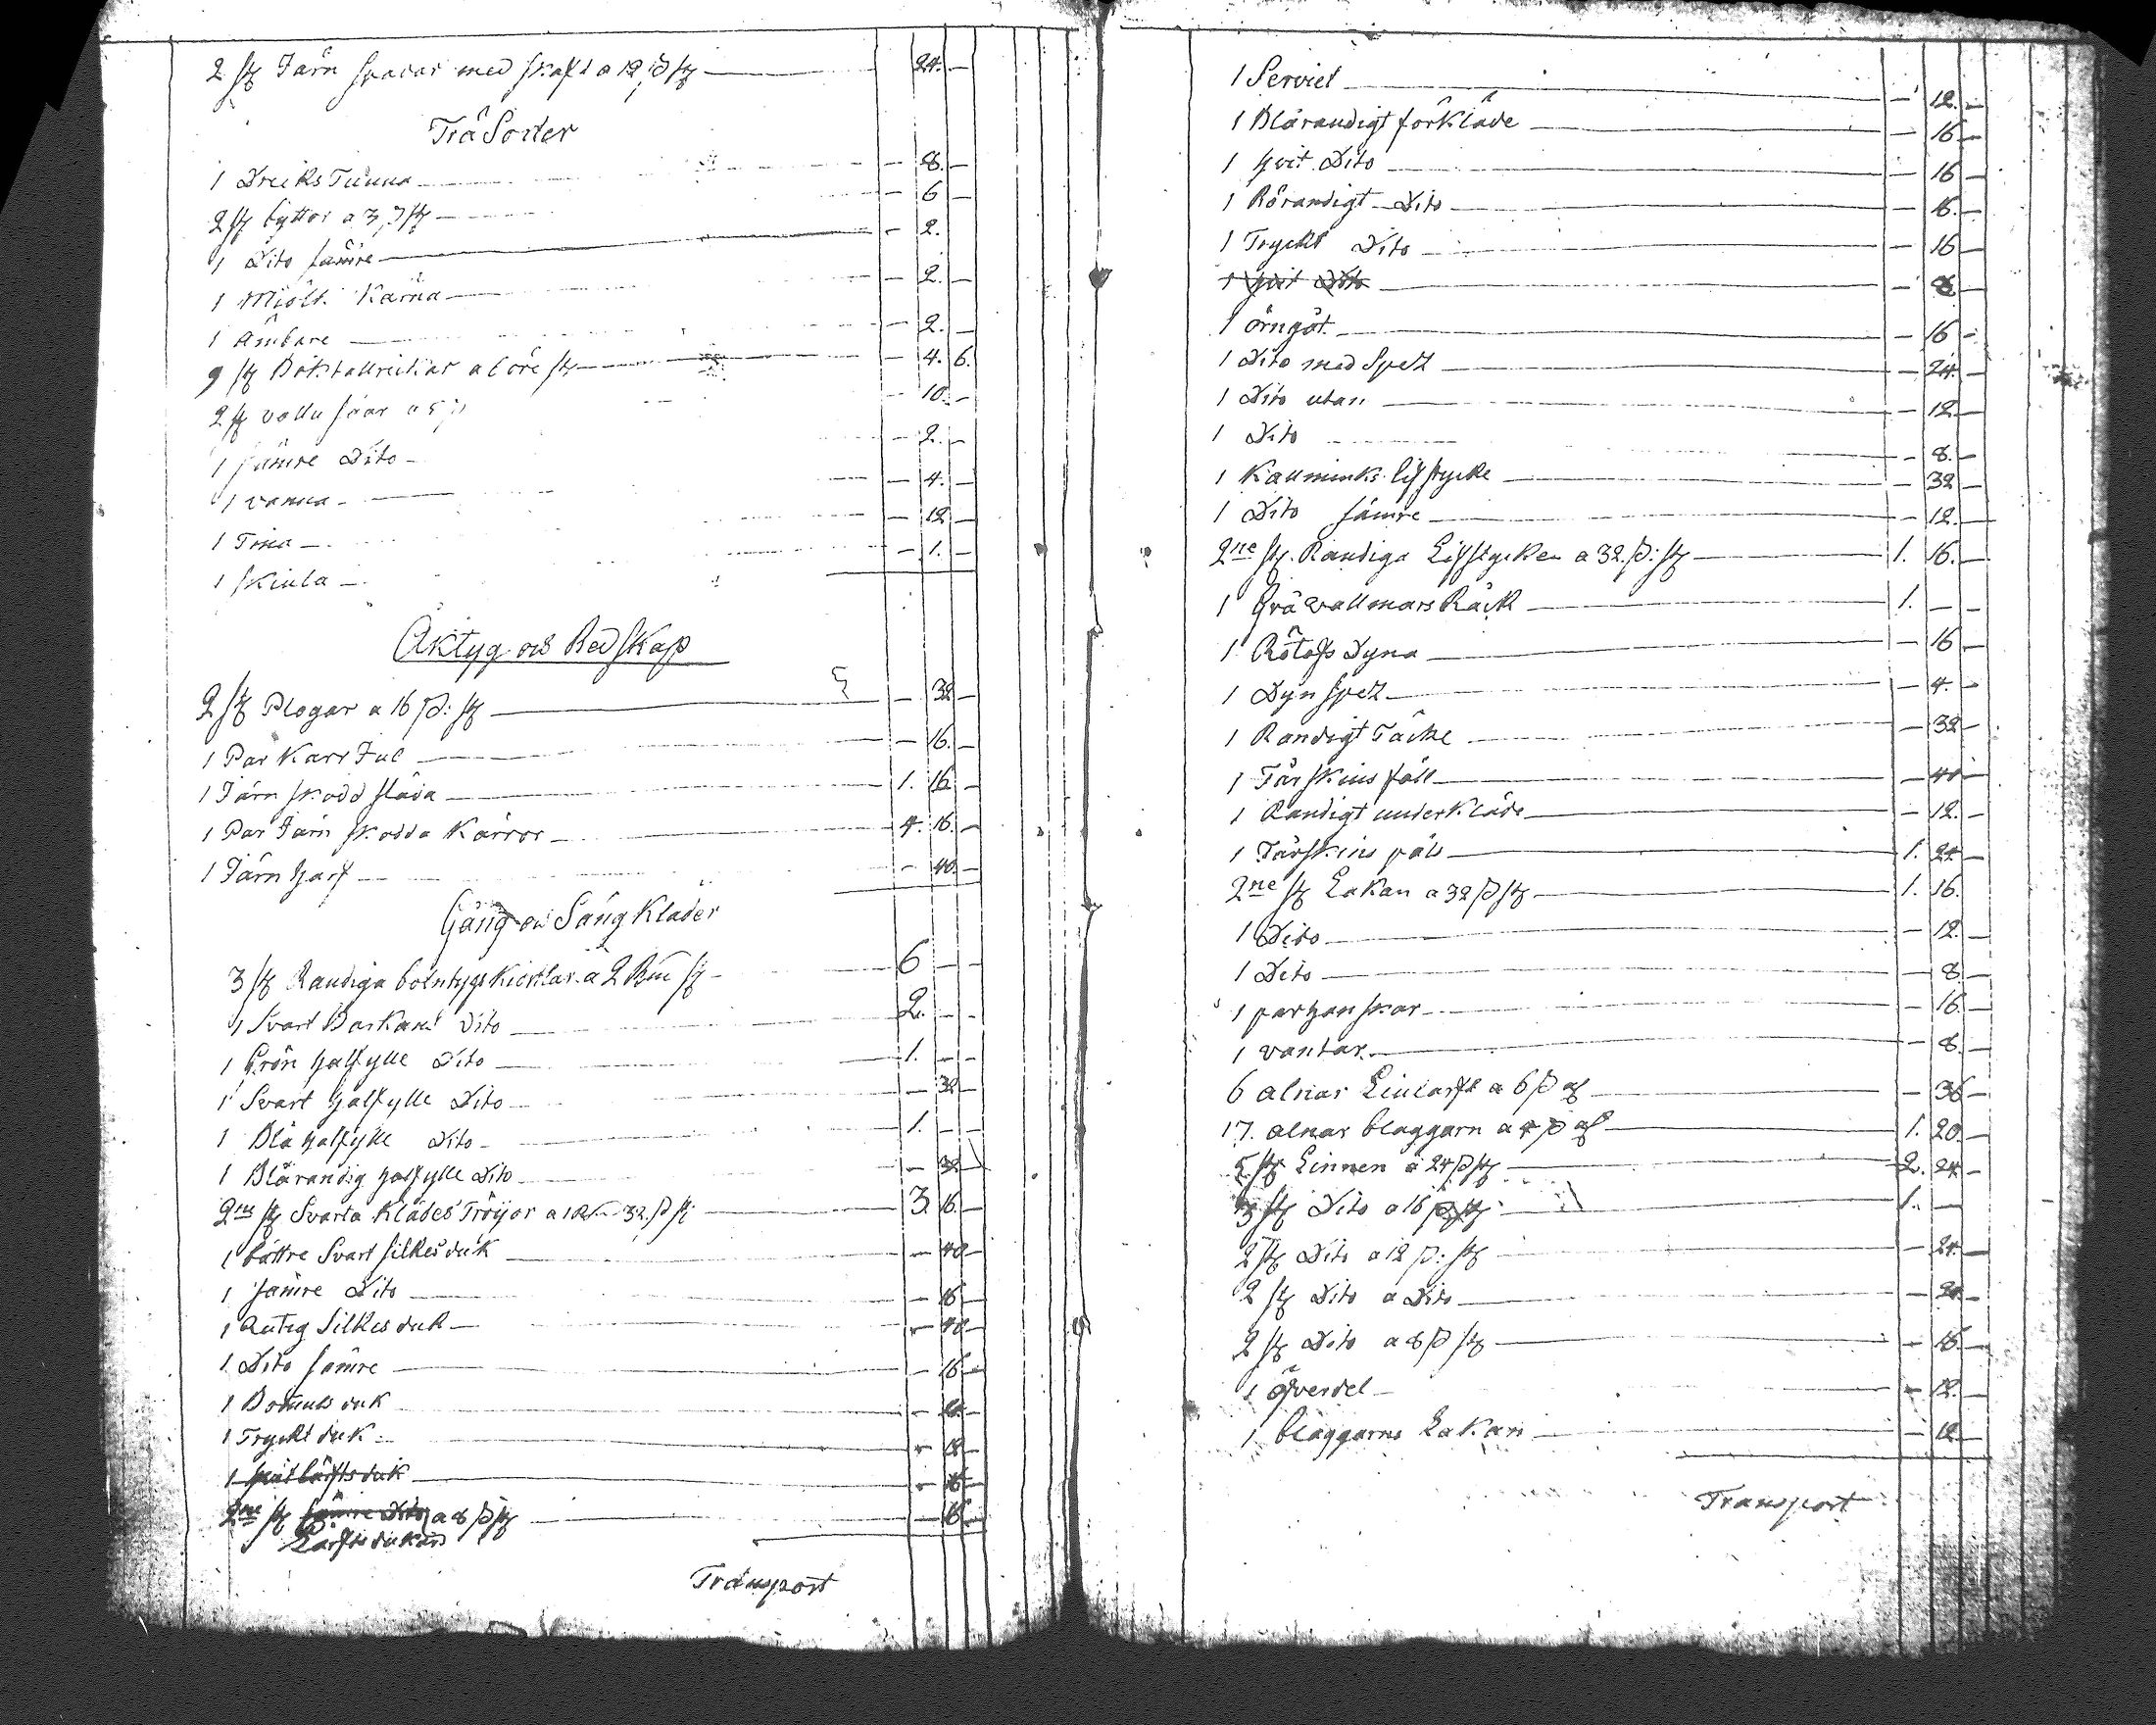 2 st Järn Spadar med skaft a 12 ß st — 24. —
TräSorter
1 Dricks Tunna — 8. —
2 st byttor a 3 ß st — 6 —
1 Dito sämre — 2.
1 Miölk Kärna — 2. —
1 Ämbare — 2. —
9 st Boktallrickar a 6 öre st — 4. 6.
2 st vattu såar a 5 ß — 10. —
1 sämre Dito — 2. —
1 vanna — 4. —
1 Tina — 12 —
1 skiula — 1. —
Åktyg och Redskap
2 st Plogar a 16 ß: st — 32 —
1 Par Karr Jul — 16. —
1 Järn skodd släda 1. 16 —
1 Par Järn skodda Kärror 4. 16. —
1 Järn harf — 40. —
Gång och Säng Kläder
3 st Randiga bolntygs Kiortlar a 2 Rdr st 6 — —
1 Svart Barkans Dito 2. — —
1 Grön halfylle Dito 1. — —
1 Svart halfylle Dito — 32 —
1 Blå halfylle Dito 1. — —
1 Blårandig halfylle Dito — 32
2ne st Svarta Klädes Tröijor a 1 Rdr 32 ß st 3 16. —
1 bättre Svart silkesduk — 40 —
1 sämre Dito — 16 —
1 Rutig Silkesduk — 40 —
1 Dito sämre — 16 —
1 Bomuls duk —
1 Tryckt duk — 12 —
1 hvit lärftsduk — 16 —
2ne st sämre Dito a 8 ß st — 16 —
Lärftsdukar
Transport
1 Serviet — 12. —
1 Blårandigt förkläde — 16 —
1 hvit Dito — 16 —
1 Rörandigt Dito — 16. —
1 Tryckt Dito — 16 —
1 hvit Dito — 8
1 örngåt — 16 —
1 Dito med Spetz — 24. —
1 Dito utan — 12 —
1 Dito — 8. —
1 Kallminks lifstycke — 32 —
1 Dito sämre — 12. —
2ne st. Randiga Lifstycken a 32 ß: st 1. 16. —
1 Grå vallmars Råck 1. — —
1 Dyna — 16 —
1 Dyn Spetz — 4. —
1 Randigt Täcke — 32 —
1 Fårskins fäll — 40 —
1 Randigt underkläde — 12. —
1 Fårskins päls 1. 24 —
2ne st Lakan a 32 ß st 1. 16.
1 Dito — 12. —
1 Dito — 8 —
1 par hanskar — 16 —
1 vantar — 8. —
6 alnar Linlärft a 6 ß al — 36 —
17. alnar blaggarn a 4 ß al 1. 20. —
5 st Linnen a 24 ß st 2. 24 —
3 st Dito a 16 ß st 1. —
2 st Dito a 12 ß: st — 24. —
2 st Dito a Dito — 24 —
2 st Dito a 8 ß st — 16. —
1 öfverdel — 12. —
1 blaggarns Lakan — 12 —
Transport